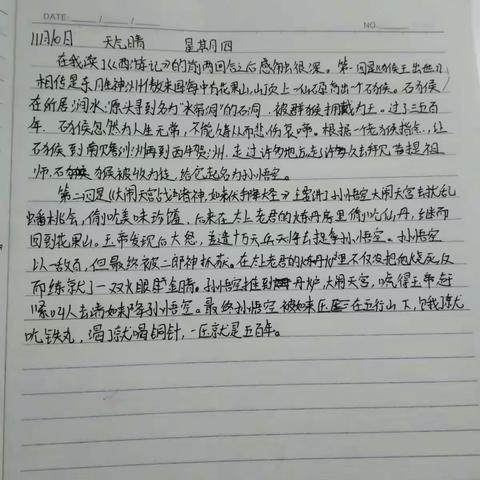 DATE: / /
NO.
11月10日 天气晴 星期四
在我读了《西游记》的前两回合之后感触很深。第一回是《猴王出世》
相传是东胜神州傲来国海中有花果山,山顶上一仙石产出一个石猴。石猴
在所居涧水源头寻到名为"水帘洞"的石洞,被群猴拥戴为王。过了三五百
年,石猴忽然为人生无常,不能久
石猴到南赡部洲再到西牛贺州,走过许多地方
师,石猴被收为徒,给它起名为孙悟空。
第二回是《大闹天宫战诸神,如来伏 大圣》主要讲了孙悟空大闹天宫去扰乱
蟠桃会,偷吃美味珍馐,后来在太上老君的炼丹房里偷吃仙丹,继而
回到花果山。玉帝发现后大怒,差遣十万天兵天将去捉拿孙悟空。孙悟空
以一敌百,但最终被二郎神抓获。在太上老君的炼丹炉里不仅没把他烧死,反
而练就了一双火眼金睛。孙悟空推到丹炉,大闹天宫,吓得玉帝赶
紧叫人去请如来降孙悟空。最终孙悟空被如来压在五行山下,饿了就
吃铁丸,渴了就喝铜针,一压就是五百年。